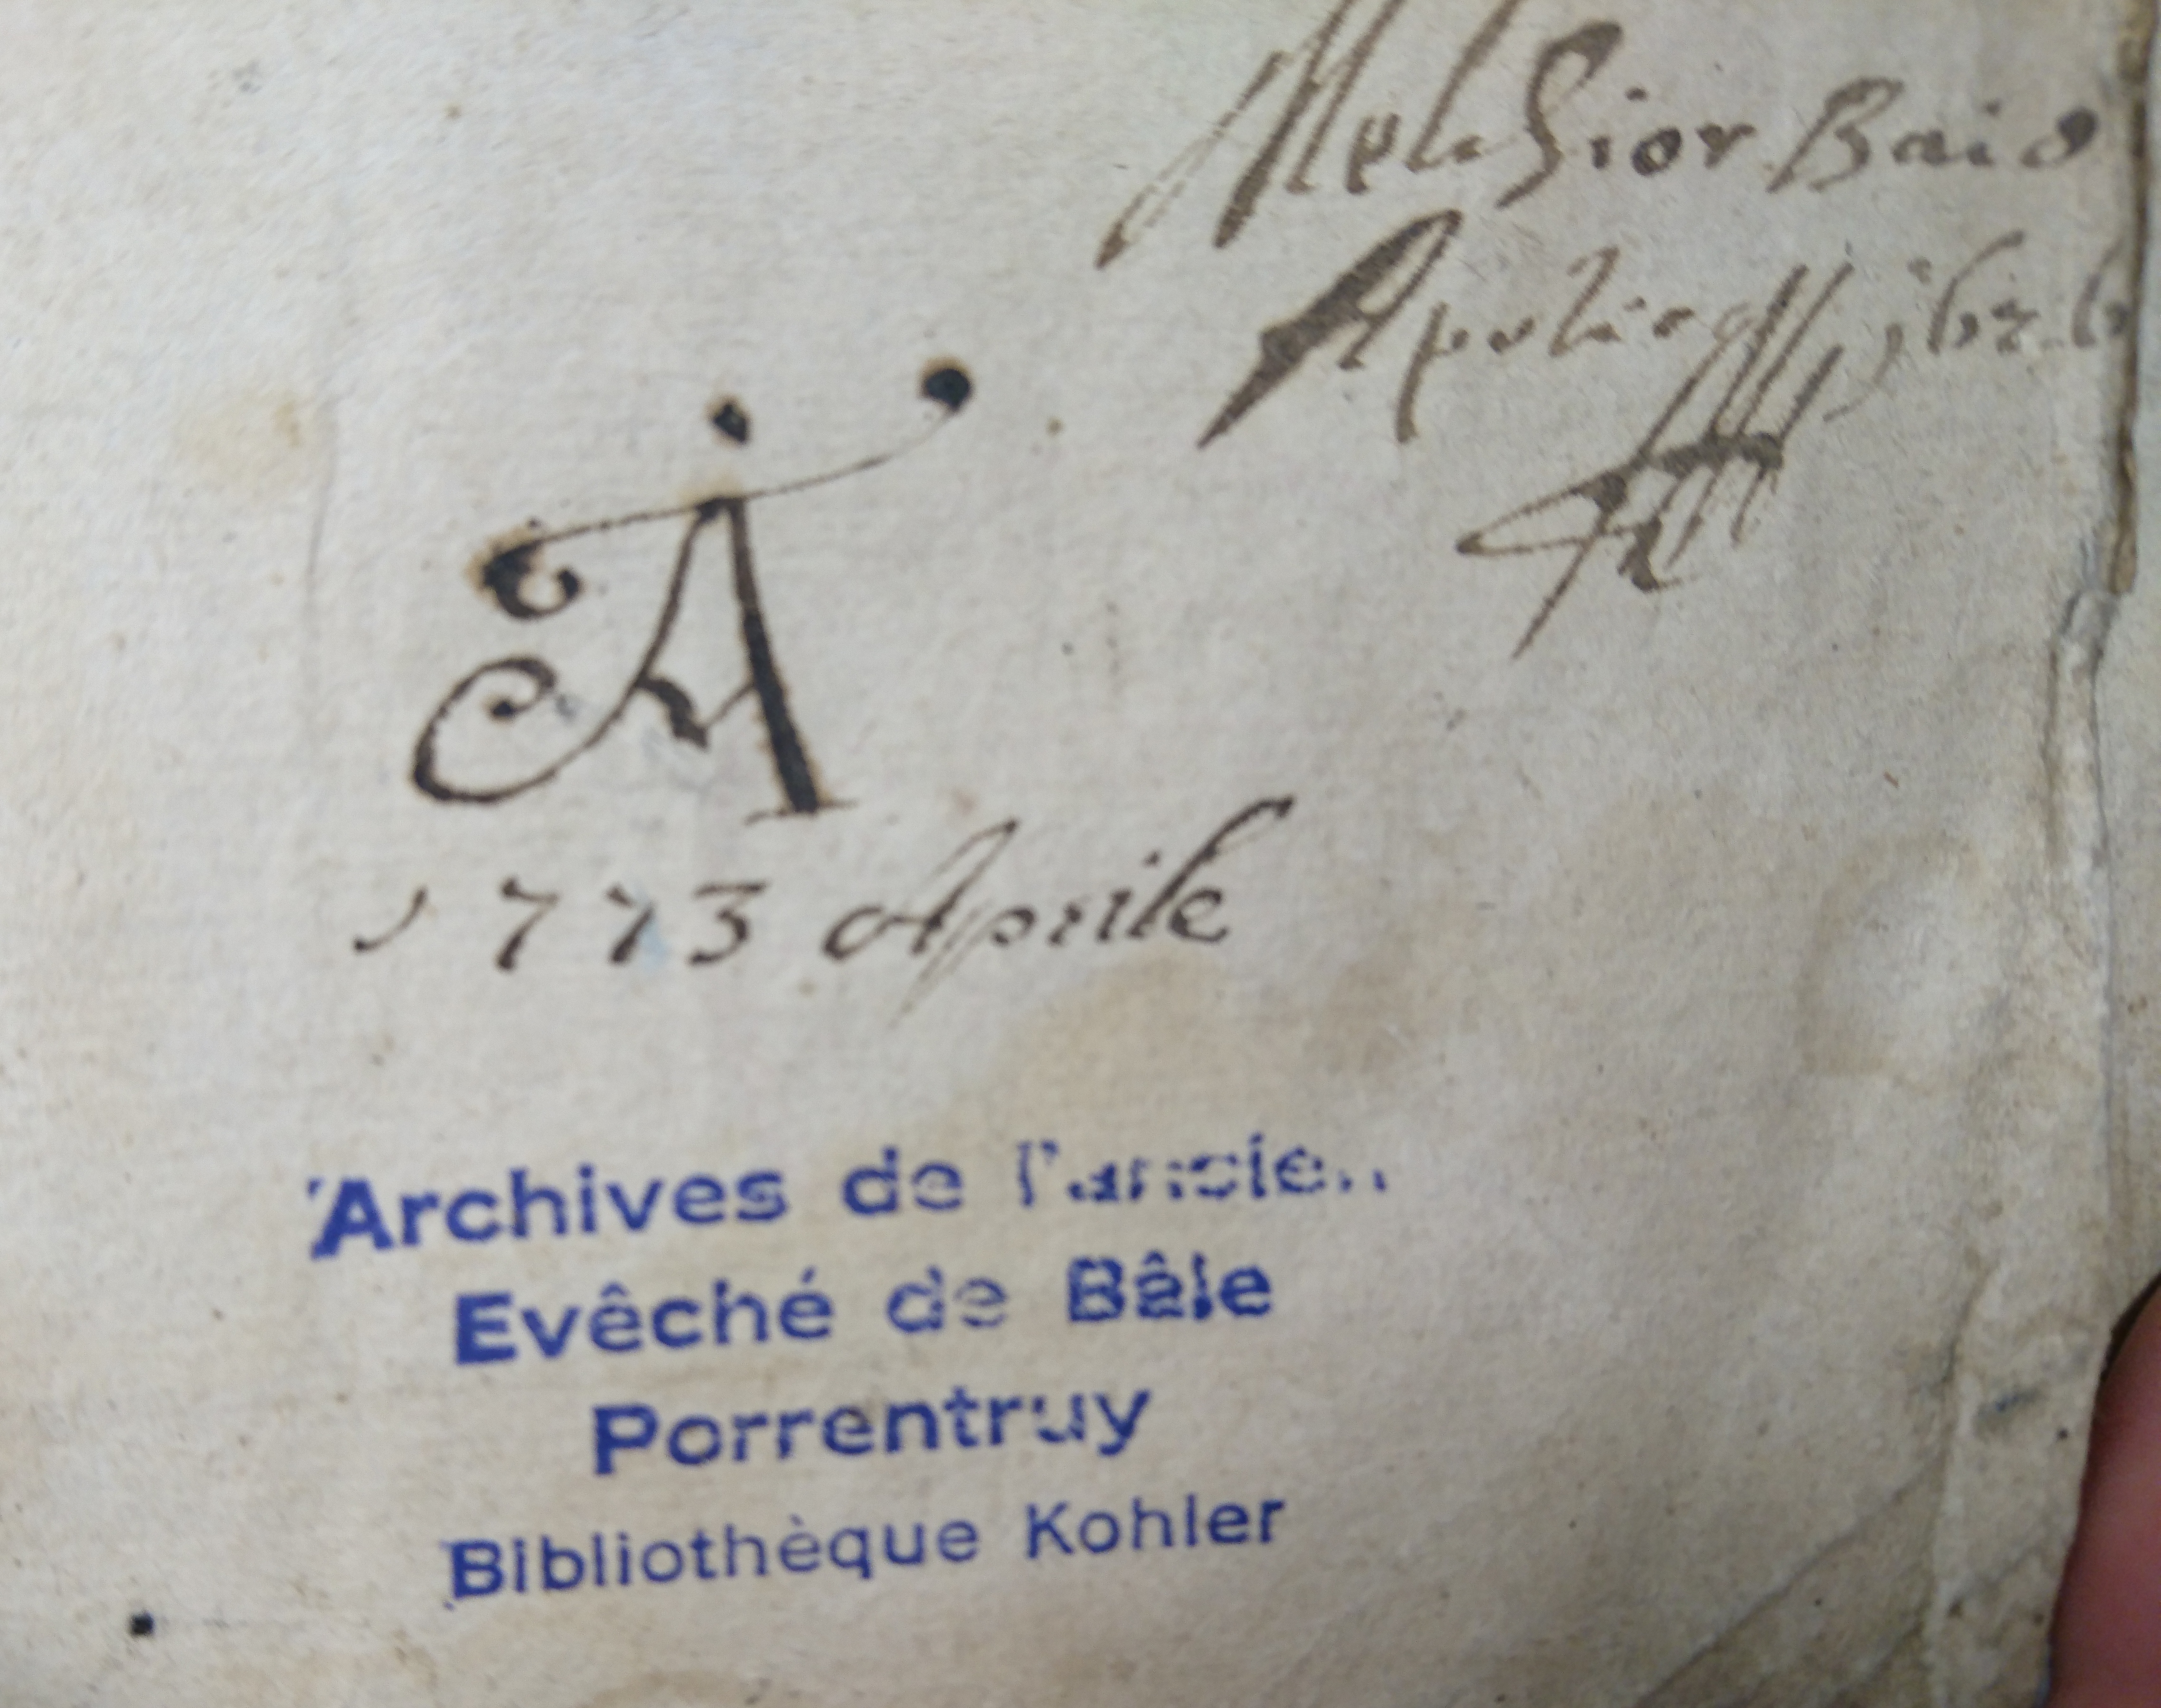 Melchior Baid
A
1773 Aprile
Archives de l'ancien
Evêché de Bâle
Porrentruy
Bibliothèque Kohler